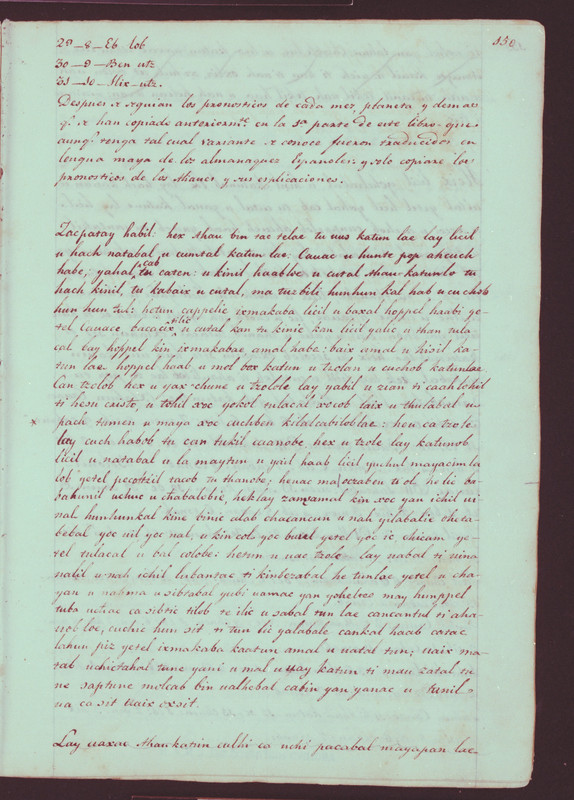 150
29 _ 8 _ Eb lob
30 _ 9 _ Ben utz
31 _ 10 _ Hix _ utz.
Despues se seguian los pronosticos de cada mes, planeta y demas
q.e se han copiado anteriorm.te en la 1a parte de este libro - que
aunq.e tenga tal cual variante se conoce fueron traducidos en
lengua maya de los almanaquez españoles y solo copiare los
pronosticos de los Ahaues y sus esplicaciones.
habil: hex Ahau bin lae tu uus katun lae lay licil
u hach natabal u cumtal katun lae: Cauac u hunte pop ah cuch
habe; yahal cab tu caten: u kinil haabloe u cutal Ahau katunlo tu
hach kinil, tu kabaix u cutal, ma tuz bili hunhun kal hab u cuchob
hun hun tul: hetun cappelic ixmakaba licil u baxal hoppel haabi ye-
tel Cauace, bacacix ilic u cutal kan tu kinic kan licil yalic u than tula-
cal lay hoppel kin ixmakabae amal habe: baix amal u hisil ka-
tun lae hoppel haab u mol box katun u cuchob katunlae
Can tzolob hex u yax chune u tzolole lay yabil u zian ti caah lohil
ti hesu cristo, u tohil xoc yokol tulacal xocob laix u thulabal u-
pach tumen u maya xoc cuchben kilalcabilobloe: heu ca tzole
x lay cuch habob tu can tukil cuanobe hex u tzole lay katunob
licil u natabal u la maytun u yail haab licil yuchul mayacimla
lob yetel pecoltzil racob tu thanobe; heuac ma ocraben u ol he lic ba-
bahunil uchuc u chabalobie, hek lay xamal kin xoc yan ichil ui
nal hunhunkal kine binic alab chacancun u nah yilabalic oheta-
bebal yoc uil yoc nal, u kin col yoc buul yetel yoc ic, chicam ye-
tel tulacal u bal colobe: hetun u uac tzole lay nabal ti nina
nabil u nah ichil lubantac ti kinbezabal he tunlae yetel u cha-
yan u nahma u sibtabal yubi uamac yan yoheltes may hunppel
tuba uchac ca sibtic tilob te ilic u sabal tun lae cancantul ti aha-
uob loe, cuchie hun sit ti tun lic yalabale cankal haab catac
lahun piz yetel ixmakaba kaatun amal u uatal tun; uaix ma-
tab uchictahal tune yani u mal u uay katun ti mau zatal tu
ne saptune molcab bin ualhebal cabin yan yanac u tunil
ua ca sit uaix oxsit.
Lay uaxac Ahau katun culhi ca uchi pacabal mayapan lae